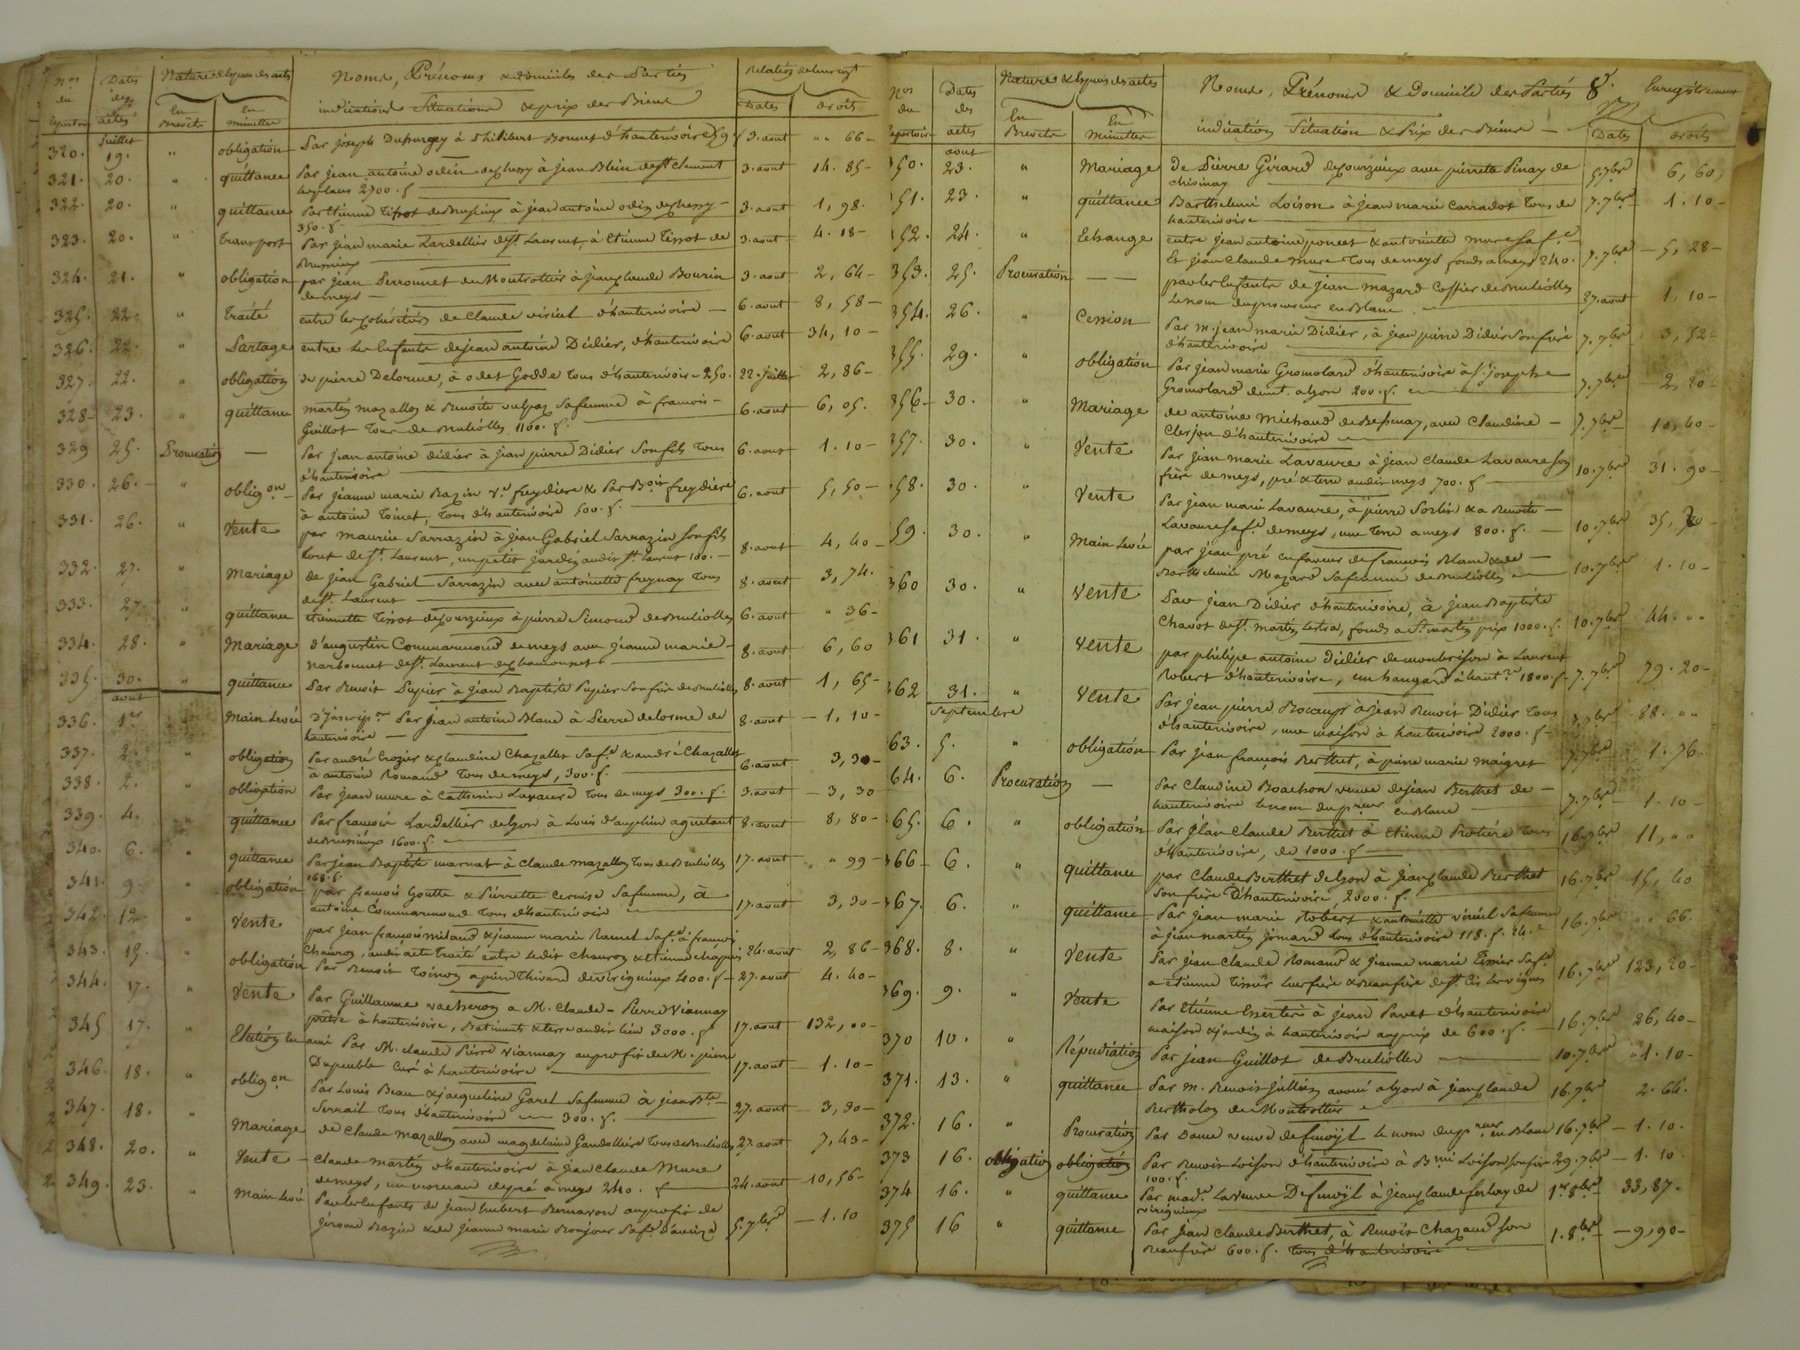 Nos du Repertoire | Dates des actes | Nature & Espece des actes | Noms, Prénoms & domiciles des Parties | Relation de l'enregt
En Brevets | En minutes | indication Situation & prix des Biens | Dates | droits
Juillet
320. 19. " obligation Par Joseph à Philibert Bonnet d'hauterivoire 3. aout " 66
321. 20. " quittance Par Jean antoine odin à Jean Blein de St Clement 3. aout 14. 85
les places 2700. f
322. 20. " quittance Par Etienne Tissot de Brussieux à Jean antoine odin 3. aout 1, 98.
350. f.
323. 20. " transport Par Jean marie Lardellier de St Laurent, à Etienne Tissot de 3. aout 4. 18
Brussieux
324. 21. " obligation par Jean Perronnet de Montrottier à Jean Claude Bourrin 3. aout 2, 64
de meys
325. 22. " traité entre les cohéritiers de Claude viricel d'hauterivoire 6. aout 8, 58
326. 22. " Partage entre les Enfants de Jean antoine Didier, d'hauterivoire 6. aout 34, 10
327. 22. " obligation de pierre Delorme, à odet Godde tous d'hauterivoire 250. 22. Juillet 2, 86
328 23. " quittance martin mazallon & Benoite sa femme à francois 6. aout 6, 05.
Guillot tous de Brullioles 1100. f.
329 25. Procuration Par Jean antoine didier à Jean pierre Didier Son fils tous 6. aout 1. 10
d'hauterivoire
330. 26. " obligon Par Jeanne marie Bazin Ve freydiere & Par Boit freydiere 6. aout 5, 50
à antoine Toinet, tous d'hauterivoire 500. f.
331. 26. " Vente par maurice Sarrazin à Jean Gabriel Sarrazin son fils 8. aout 4, 40
tous de St Laurent, un petit jardin audit St Laurent 100.
332. 27. " Mariage de Jean Gabriel Sarrazin avec antoinette freynay tous 8. aout 3, 74.
de St Laurent
333. 27 " quittance Etiennette Tissot de Courzieux à pierre Simond de Brullioles 6. aout " 36
334. 28. " Mariage d'augustin Commarmond de meys avec Jeanne marie 8. aout 6, 60
Narbonnet de St Laurent de chamousset
335. 30. " quittance Par Benoit Pupier à Jean Baptiste Pupier Son frère de Brullioles 8. aout 1, 65
aout
336. 1er Main Levée D'Inscripon Par Jean antoine Blanc à Pierre delorme de 8. aout 1, 10
hauterivoire
337. 2. " obligation Par andré Crozier & Claudine Chazallet Sa fe & andré Chazallet 6. aout 3, 30
à antoine Romand tous de meys, 300. f.
338. 2. " obligation Par Jean mure à Catherine Lavaure tous de meys 300. f. 3. aout 3, 30
339. 4. " quittance Par francois Lardellier de Lyon à Louis Dauphin 8. aout 8, 80
de Brussieux 1600. f.
340. 6. " quittance Par Jean Baptiste marnat à Claude mazallon tous de Brullioles 17. aout " 99
168. f.
341. 9. " obligation par francois Goutte & Pierrette Cernise Sa femme, à 17. aout 3, 30
antoine Commarmond tous d'hauterivoire
342. 12. " Vente par Jean francois milaud & Jeanne marie Ramel Sa fe à francois
Chauroz, audit acte Traité entre ledit Chauroz & Etienne 24. aout 2, 86
343. 15. " obligation Par Benoit Toinon à pierre Thivard de virigneux 400. f 27. aout 4. 40
344. 17. " Vente Par Guillaume vacheron à M. Claude-Pierre Viannay
prêtre à hauterivoire, Batiments & terre audit lieu 3000. f 17. aout 132, 00
345 17. " Election en ami Par M. claude Pierre Viannay au profit de M. pierre
Dupeuble Curé à hauterivoire 17. aout 1. 10
346. 18. " obligon Par Louis Beau & Jacqueline Garel Sa femme à Jean Bte
Serrail tous d'hauterivoire 300. f. 27. aout 3, 30
347. 18. " Mariage de Claude Mazallon avec magdelaine Gaudolliere tous de Brullioles 27. aout 7, 43
348. 20. " Vente Claude martin d'hauterivoire à Jean Claude Mure
de meys, un morceau de pré à meys 240. f 24. aout 10, 56
349. 23. " Main Levée Par les Enfants de Jean humbert Bernaron au profit de
Jérome Bazin & de Jeanne marie Bonjour Sa fe Davaize 5. 7bre 1. 10
Nos du Repertoire | Dates des actes | Nature & Especes des actes | Noms, Prénoms & Domicile des Parties 8e. | Enregistrement
En Brevets | En Minutes | indication Situation & Prix des Biens | Dates | droits
aout
350. 23. " Mariage De Pierre Girard de Courzieux avec pierrette Pinay de 5. 7bre 6, 60,
chevinay
351. 23. " quittance Barthelemi Loison à Jean marie Carradot tous de 7. 7bre 1. 10
hauterivoire
352. 24. " Echange entre Jean antoine poncet & antoinette mure Sa fe
Et Jean Claude mure tous de meys fonds à meys 240. 7. 7bre 5, 28
353. 25. Procuration par les Enfants de Jean mazard Coffier de Brullioles
le nom du procureur en Blanc 27. aout 1, 10
354. 26. " Cession Par m. Jean marie Didier, à Jean pierre Didier Son frère 7. 7bre 3, 52
d'hauterivoire
355. 29. " obligation Par Jean marie Gromolard d'hauterivoire à St Joseph
Gromolard demt à Lyon 200. f. 7. 7bre 2, 20
356 30. " Mariage de antoine Michaud de Bessenay, avec Claudine 7. 7bre 10, 40
Clerjon d'hauterivoire
357. 30. " Vente Par Jean marie Lavaure à Jean Claude Lavaure son
frère de meys, pré & terre audit meys 700. f 10. 7bre 31. 90
358. 30. " Vente Par Jean marie Lavaure, à pierre Sorlin & à Benoite
Lavaure Sa fe de meys, une terre à meys 800. f. 10. 7bre 35, 20
359. 30. " Main Levée par Jean pré en faveur de francois Blanc & de
Barthelemie Mazard Sa femme de Brullioles 10. 7bre 1. 10
360 30. " Vente Par Jean Didier d'hauterivoire, à Jean Baptiste
Chavot de St. martin Lestra, fonds à St. martin prix 1000. f. 10. 7bre 44. "
361 31. " Vente par philipe antoine Didier de monbrison à Laurent
Robert d'hauterivoire, un hangard à haut.re 1800. f 7. 7bre 79. 20
362 31. " Vente Par Jean pierre à Jean Benoit Didier tous
d'hauterivoire, une maison à hauterivoire 2000. f 7. 7bre 88. "
Septembre
363. 5. " obligation Par Jean francois Berthet, à pierre marie Maigret 7. 7bre 1. 76.
364. 6. Procuration Par Claudine Boachon veuve de Jean Berthet de
hauterivoire le nom du preur en Blanc 7. 7bre 1. 10
365. 6. " obligation Par Jean Claude Berthet à Etienne Protiere tous 16. 7bre 11, "
d'hauterivoire, de 1000. f
366 6. " quittance par Claude Berthet de Lyon à Jean Claude Berthet 16. 7bre 15, 40
son frère D'hauterivoire, 2000. f.
367. 6. " quittance Par Jean marie Robert & antoinette viricel Sa femme 16. 7bre " 66.
à Jean Martin Jomard tous d'hauterivoire 118. f. 24. c
368. 8. " Vente Par Jean Claude Romand & Jeanne marie Tissier Sa fe
à Etienne Tissier leur frère & Beaufrère de St. Cir les vignes 16. 7bre 123, 20
369. 9. " Vente Par Etienne Essertier à Jean Pavet d'hauterivoire
maison & jardin à hauterivoire au prix de 600. f. 16. 7bre 26, 40
370 10. " Répudiation Par Jean Guillot de Brullioles 10. 7bre 1. 10
371. 13. " quittance Par m. Benoit Jullien avoué à Lyon à Jean Claude 16. 7bre 2. 64.
Bertholon de Montrottier
372. 16. " Procuration Par Dame veuve de le nom du preur en Blanc 16. 7bre 1. 10.
373 16. obligation obligation Par Benoit Loison d'hauterivoire à Bmi Loison son frère 29. 7bre 1. 10
100. f.
374 16. " quittance Par made. La veuve à Jean Claude ferlay de 1er 8bre 33, 87.
virigneux
375 16 " quittance Par Jean Claude Berthet, à Benoit Chazaud son 1. 8bre 9, 90
Beaufrère 600. f. tous d'hauterivoire